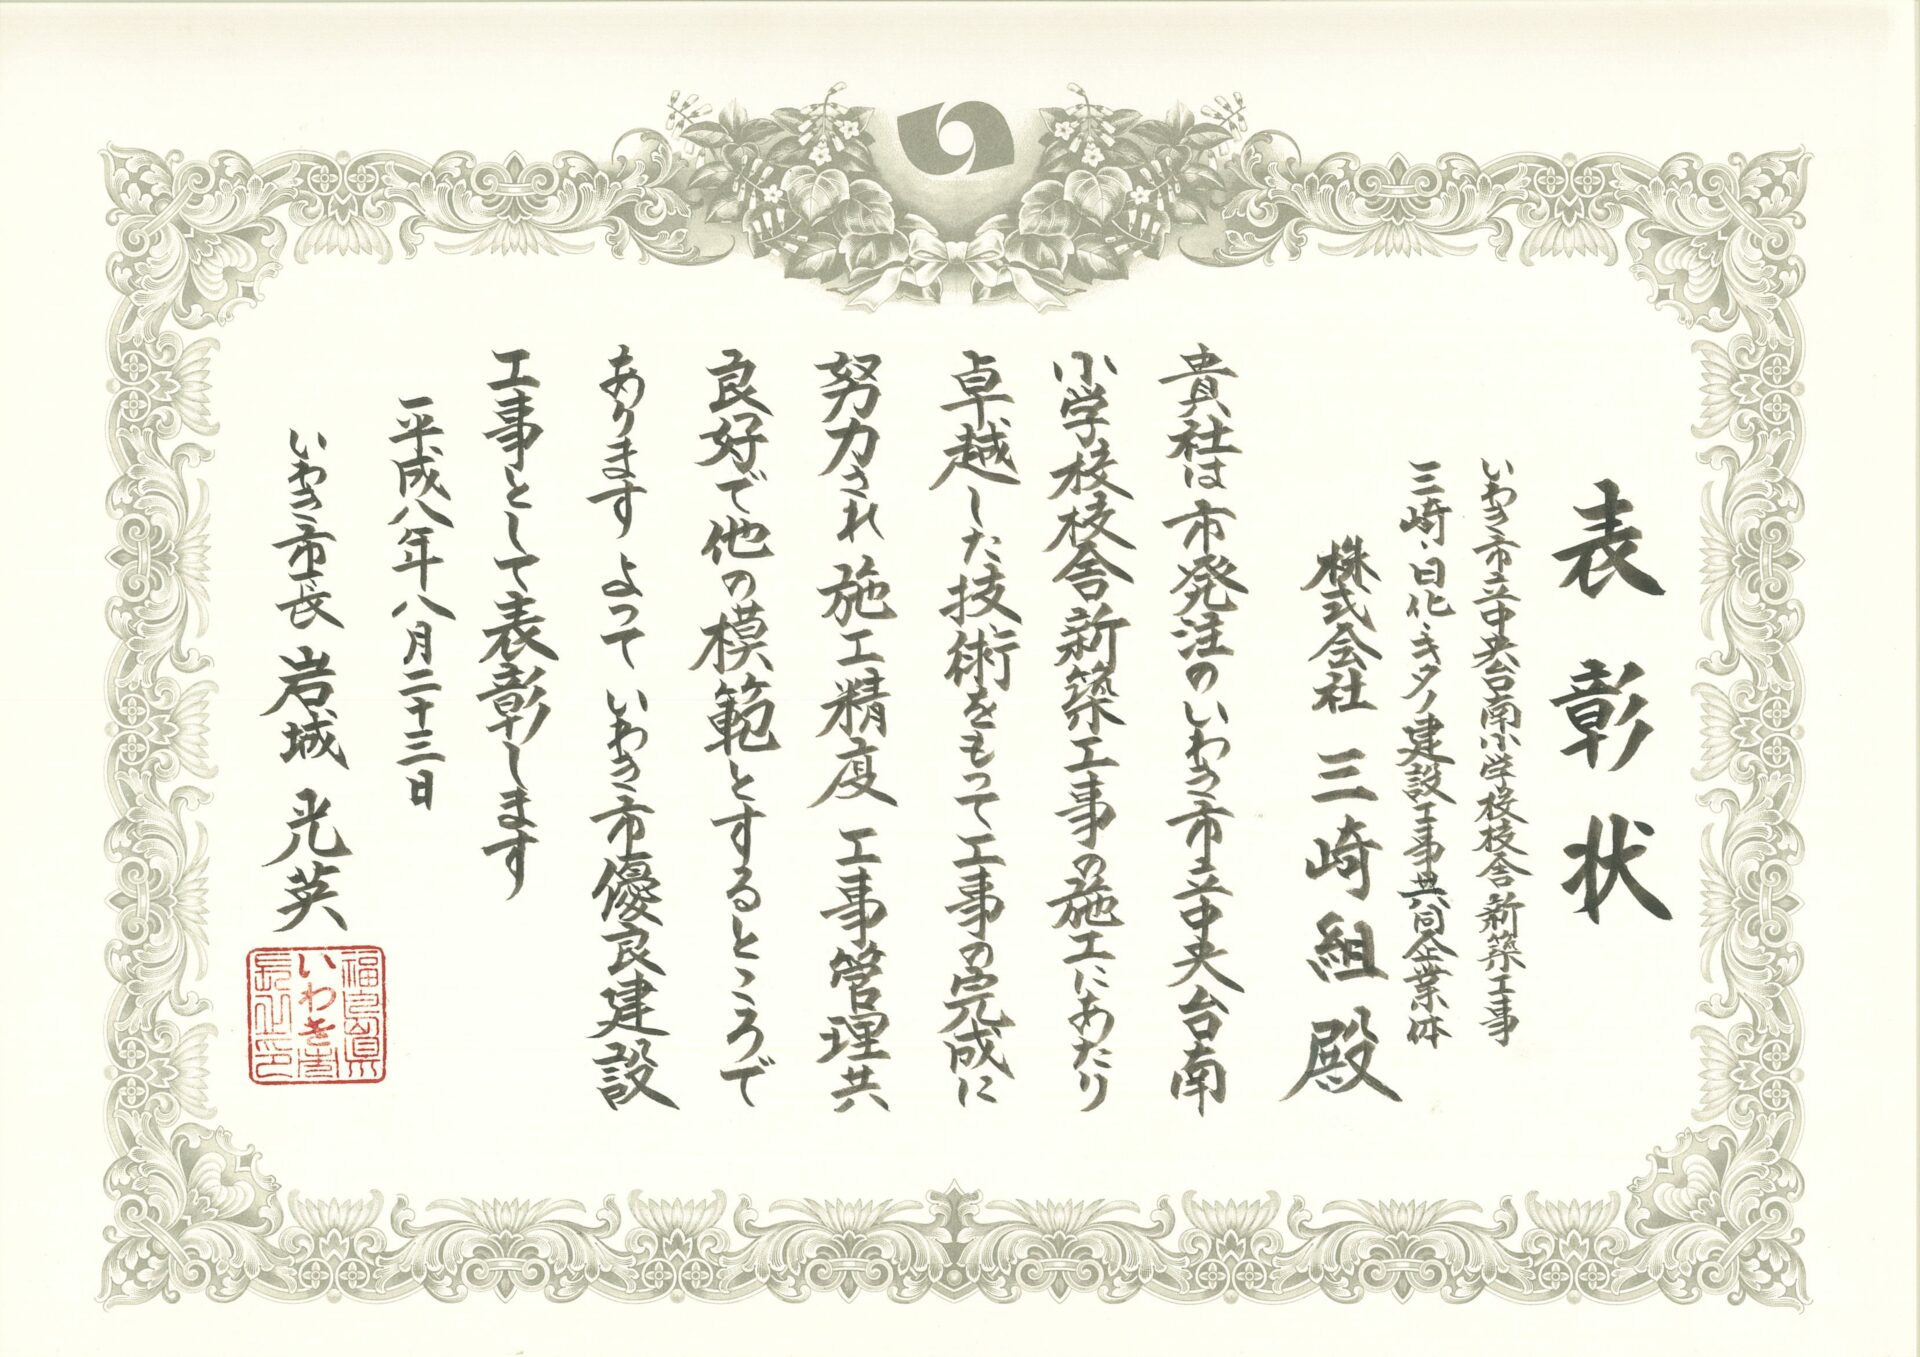 表彰状
いわき市立中央台南小学校校舎新築工事
三崎・日化・キタノ建設工事共同企業体
株式会社 三崎組 殿
貴社は市発注のいわき市立中央台南
小学校校舎新築工事の施工にあたり
卓越した技術をもって工事の完成に
努力され施工精度 工事管理共
良好で他の模範とするところで
あります よって いわき市優良建設
工事として表彰します
平成八年八月二十三日
いわき市長 岩城 光英
福島県
いわき市
長之印